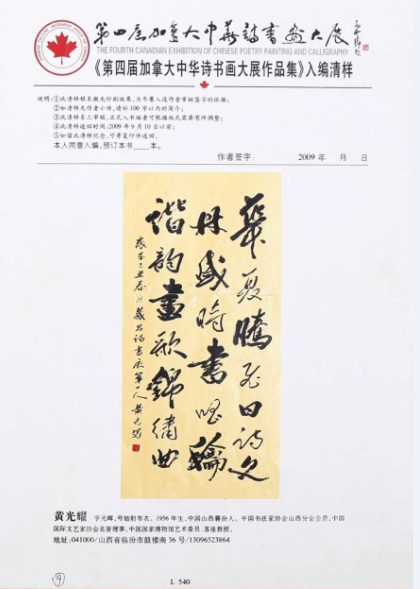 第四届加拿大中华诗书画大展
THE FOURTH CANADIAN EXHIBITION OF CHINESE POETRY PAINTING AND CALLIGRAPHY
《第四届加拿大中华诗书画大展作品集》入编清样
说明:①此清样稿系激光印刷效果,为参赛入选作者审核签字的依据;
②如清样无作者小传,请补100字以内的简介;
③此清样系三审稿,正式入书编者可根据版式需要有所调整;
④此清样返回时间:2009年9月10日以前;
⑤如留此清样纪念,可寄复印件返回。
本人同意入编,预订本书____本。
作者签字: 2009 年 月 日
华夏腾飞日诗文
盛时书
谐韵画歌锦绣曲
黄光耀 字元晖,号 布衣。1956年生,中国山西襄汾人。中国书法家协会山西分会会员,中国
国际文艺家协会名誉理事,中国国家博物馆艺术委员、客座教授。
地址:041000/山西省临汾市鼓楼南36号/13096523864
⑨
L 540